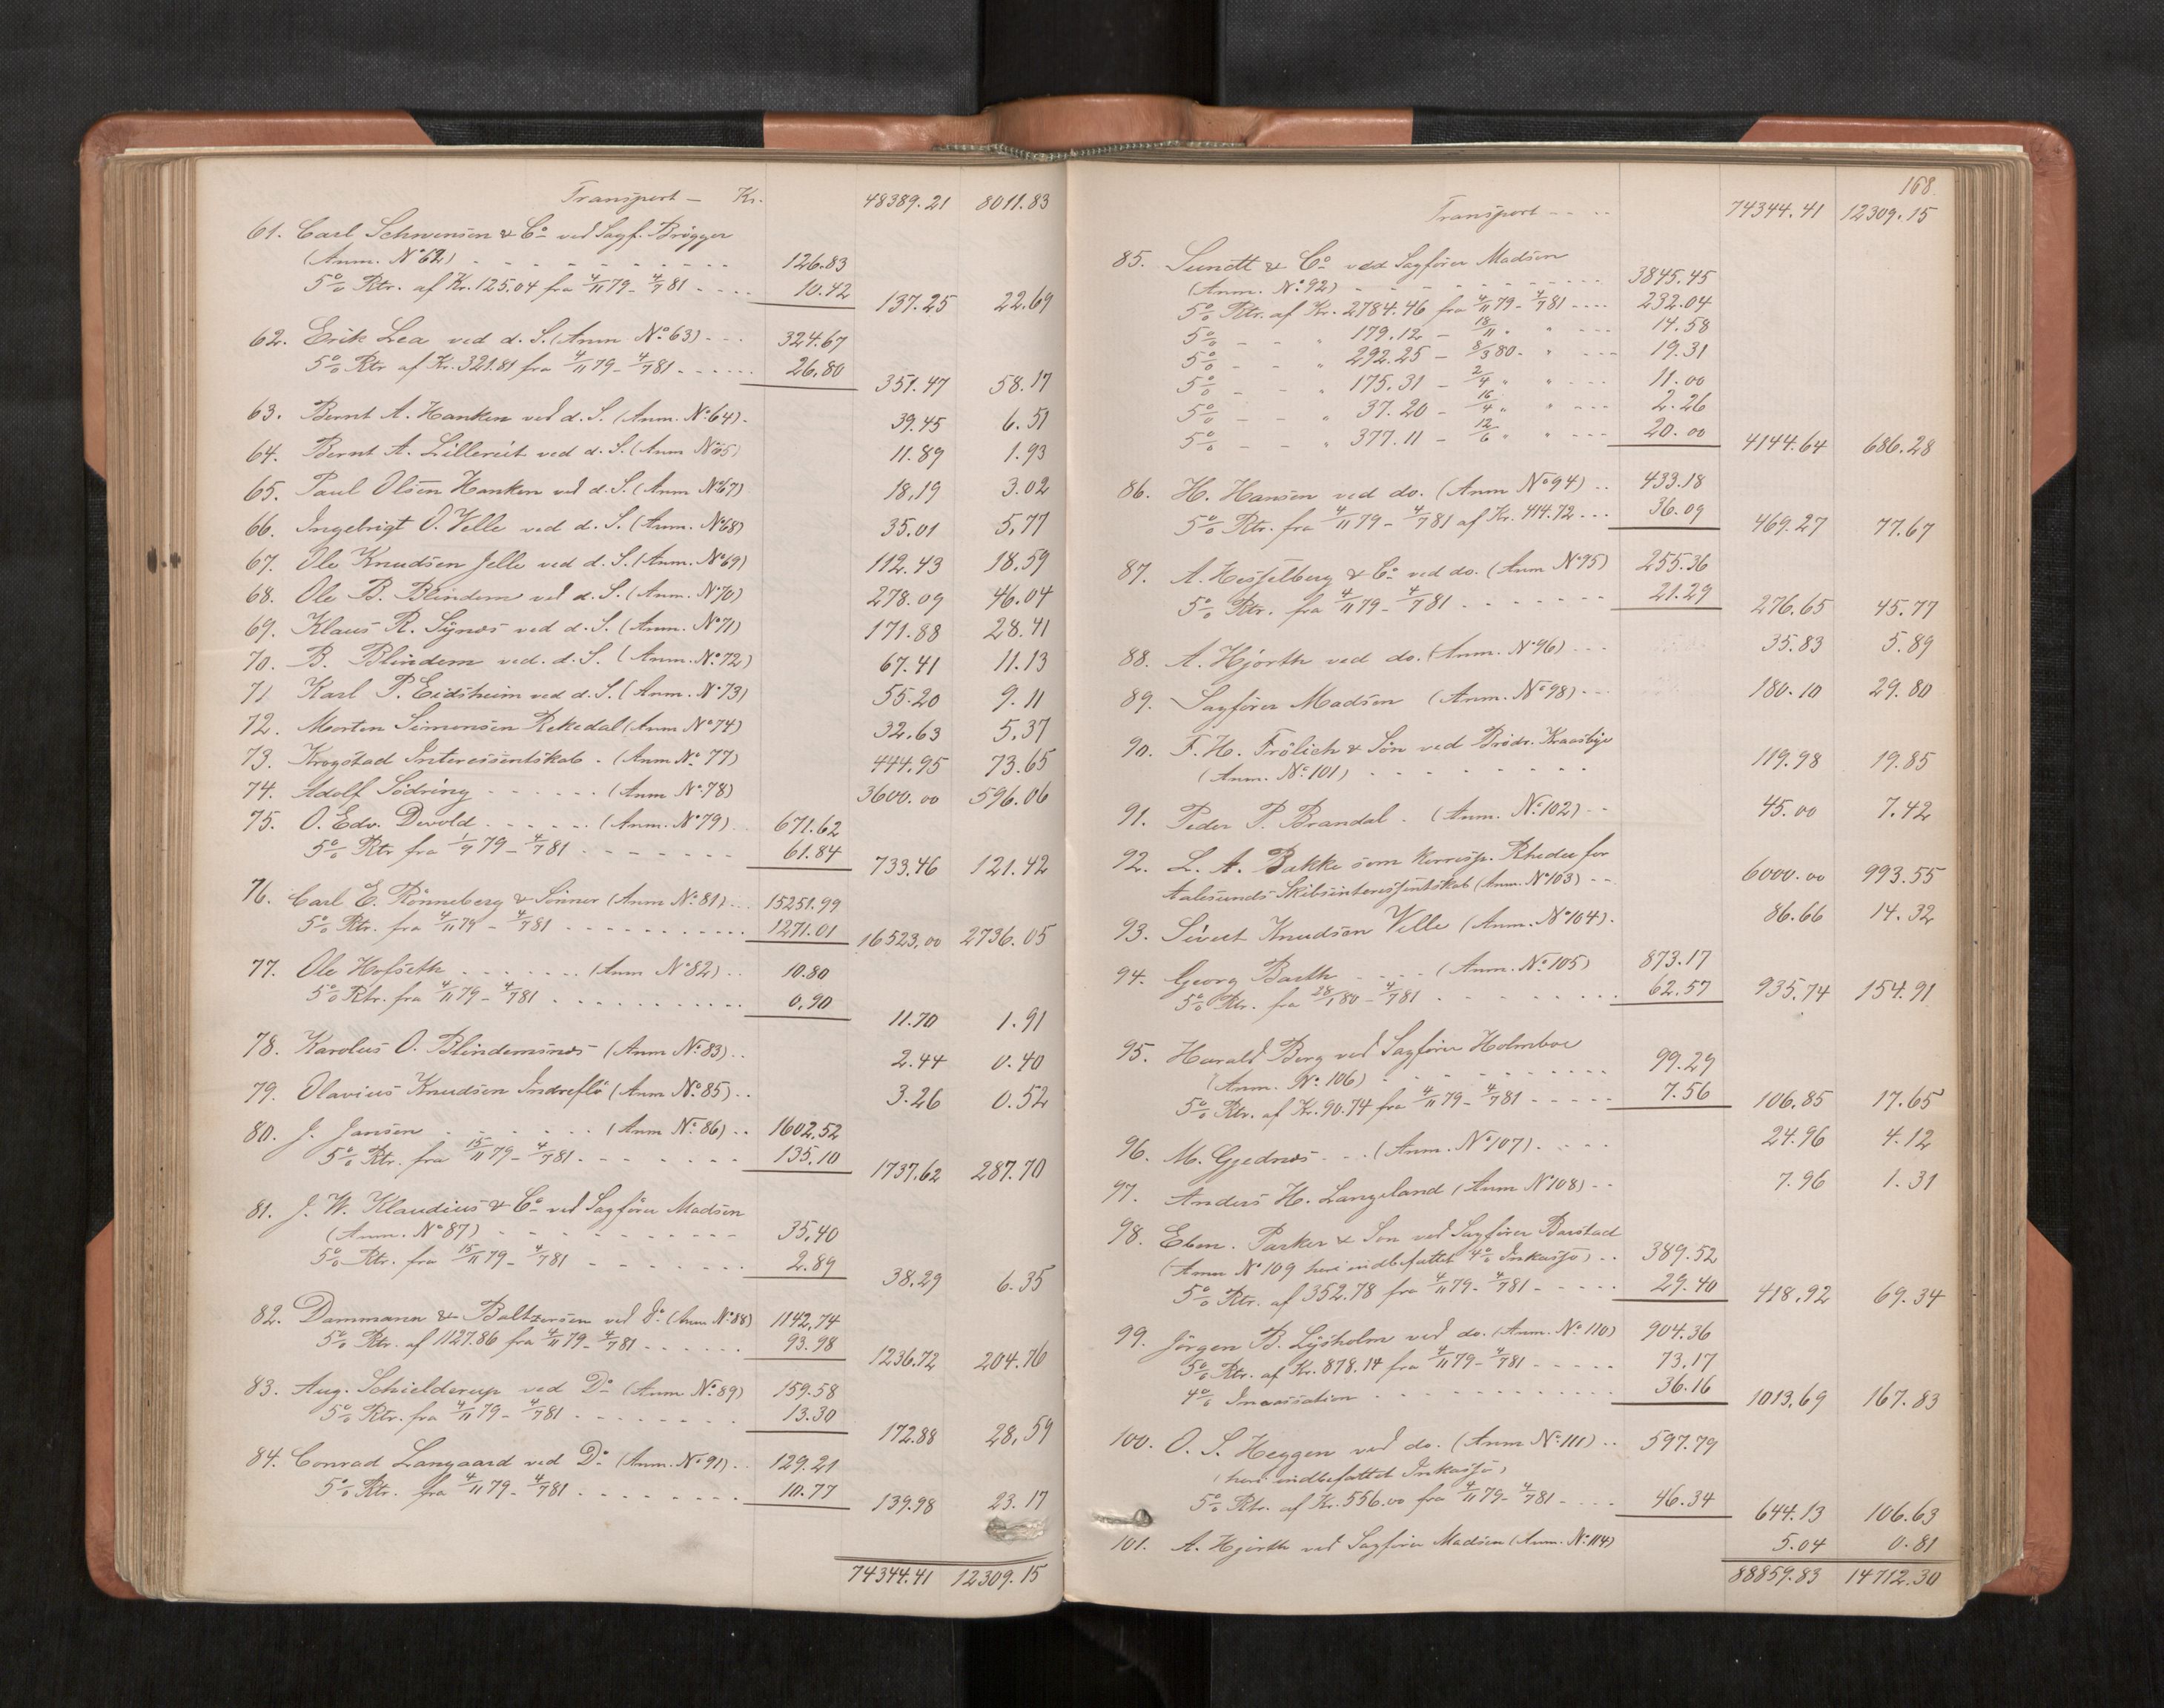 Transport — Kr. 48389.21 8011.83
61. Carl Schwensen & Co ved Sagf. Brögger
(Anm. No 62) 126.83
5% Rtr. af Kr. 125.04 fra 4/11 79 - 4/7 81 10.42 137.25 22.69
62. Erik Lea ved d. S. (Anm No 63) 324.67
5% Rtr af Kr. 321.81 fra 4/11 79 - 4/7 81 26.80 351.47 58.17
63. Bernt A. Hanken ved d. S. (Anm. No 64) 39.45 6.51
64. Bernt A. Lillereit ved d. S. (Anm No 65) 11.89 1.93
65. Paul Olsen Hanken ved d. S. (Anm No 67) 18.19 3.02
66. Ingebrigt O. Velle ved d. S. (Anm. No 68) 35.01 5.77
67. Ole Knudsen Jelle ved d. S. (Anm. No 69) 112.43 18.59
68. Ole B. Blindem ved d. S. (Anm. No 70) 278.09 46.04
69. Klaus R. Synæs ved d. S. (Anm. No 71) 171.88 28.41
70. B. Blindem ved. d. S. (Anm. No. 72) 67.41 11.13
71 Karl P. Eidsheim ved d. S. (Anm. No 73) 55.20 9.11
72. Morten Simonsen Rekedal (Anm No 74) 32.63 5.37
73. Krogstad Interessentskab. (Anm No. 77) 444.95 73.65
74. Adolf Södring (Anm No. 78) 3600.00 596.06
75. O. Edv. Devold (Anm. No 79) 671.62
5% Rtr fra 1/9 79 - 4/7 81 61.84 733.46 121.42
76. Carl E. Rönneberg & Sönner (Anm No. 81) 15251.99
5% Rtr. fra 4/11 79 - 4/7 81 1271.01 16523.00 2736.05
77. Ole Hofseth (Anm No 82) 10.80
5% Rtr. fra 4/11 79 - 4/7 81 0.90 11.70 1.91
78. Karolus O. Blindemsnæs (Anm No. 83) 2.44 0.40
79. Olavius Knudsen Indreflö (Anm No. 85) 3.26 0.52
80. J. Jansen (Anm No. 86) 1602.52
5% Rtr. fra 15/11 79 - 4/7 81 135.10 1737.62 287.70
81. J. W. Klaudius & Co ved Sagförer Madsen
(Anm. No 87) 35.40
5% Rtr. fra 15/11 79 - 4/7 81 2.89 38.29 6.35
82. Dammann & Baltzersen ved Do (Anm No. 88) 1142.74
5% Rtr. af 1127.86 fra 4/11 79 - 4/7 81 93.98 1236.72 204.76
83. Aug. Schielderup ved Do (Anm No. 89) 159.58
5% Rtr. fra 4/11 79 - 4/7 81 13.30 172.88 28.59
84. Conrad Langaard ved Do (Anm. No 91) 129.21
5% Rtr. fra 4/11 79 - 4/7 81 10.77 139.98 23.17
74344.41 12309.15
168.
Transport 74344.41 12309.15
85. Sundt & Co ved Sagförer Madsen
(Anm. No. 92) 3845.45
5% Rtr. af Kr. 2784.46 fra 4/11 79 - 4/7 81 232.04
5% - - " 179.12 - 18/11 " " 14.58
5% - - " 292.25 - 8/3 80. " 19.31
5% - - " 175.31 - 2/4 " " 11.00
5% - - " 37.20 - 16/4 " " 2.26
5% - - " 377.11 - 12/6 " " 20.00 4144.64 686.28
86. H. Hansen ved do. (Anm No 94) 433.18
5% Rtr. fra 4/11 79 - 4/7 81 af Kr. 414.72 36.09 469.27 77.67
87. A. Hesselberg & Co ved do. (Anm No 95) 255.36
5% Rtr. fra 4/11 79 - 4/7 81 21.29 276.65 45.77
88. A. Hjorth ved do. (Anm. No 96) 35.83 5.89
89. Sagförer Madsen (Anm. No 98) 180.10 29.80
90. F. H. Frölich & Sön ved Brödr. Kraasbye
(Anm. No. 101) 119.98 19.85
91. Peder P. Brandal. (Anm. No. 102) 45.00 7.42
92. L. A. Bakke som Korresp. Rheder for
Aalesunds Skibsinteressentskab (Anm. No 103) 6000.00 993.55
93. Sivert Knudsen Velle (Anm. No 104). 86.66 14.32
94. Georg Barth (Anm. No. 105) 873.17
5% Rtr. fra 28/1 80 - 4/7 81 62.57 935.74 154.91
95. Harald Berg ved Sagförer Holmboe
(Anm. No. 106) 99.29
5% Rtr. af Kr. 90.74 fra 4/11 79 - 4/7 81 7.56 106.85 17.65
96. M. Gjednæs (Anm. No 107) 24.96 4.12
97. Anders H. Langeland (Anm No 108) 7.96 1.31
98. Eben. Parker & Son ved Sagförer Barstad
(Anm No 109 heri indbefattet 4% Inkasso) 389.52
5% Rtr. af 352.78 fra 4/11 79 - 4/7 81 29.40 418.92 69.34
99. Jörgen B. Lysholm ved do. (Anm. No. 110) 904.36
5% Rtr. af Kr. 878.14 fra 4/11 79 - 4/7 81 73.17
4% Incassation 36.16 1013.69 167.83
100. O. S. Heggen ved do. (Anm No. 111) 597.79
(heri indbefattet Inkasso)
5% Rtr. af Kr. 556.00 fra 4/11 79 - 4/7 81 46.34 644.13 106.63
101. A. Hjorth ved Sagförer Madsen (Anm. No. 114) 5.04 0.81
88859.83 14712.30